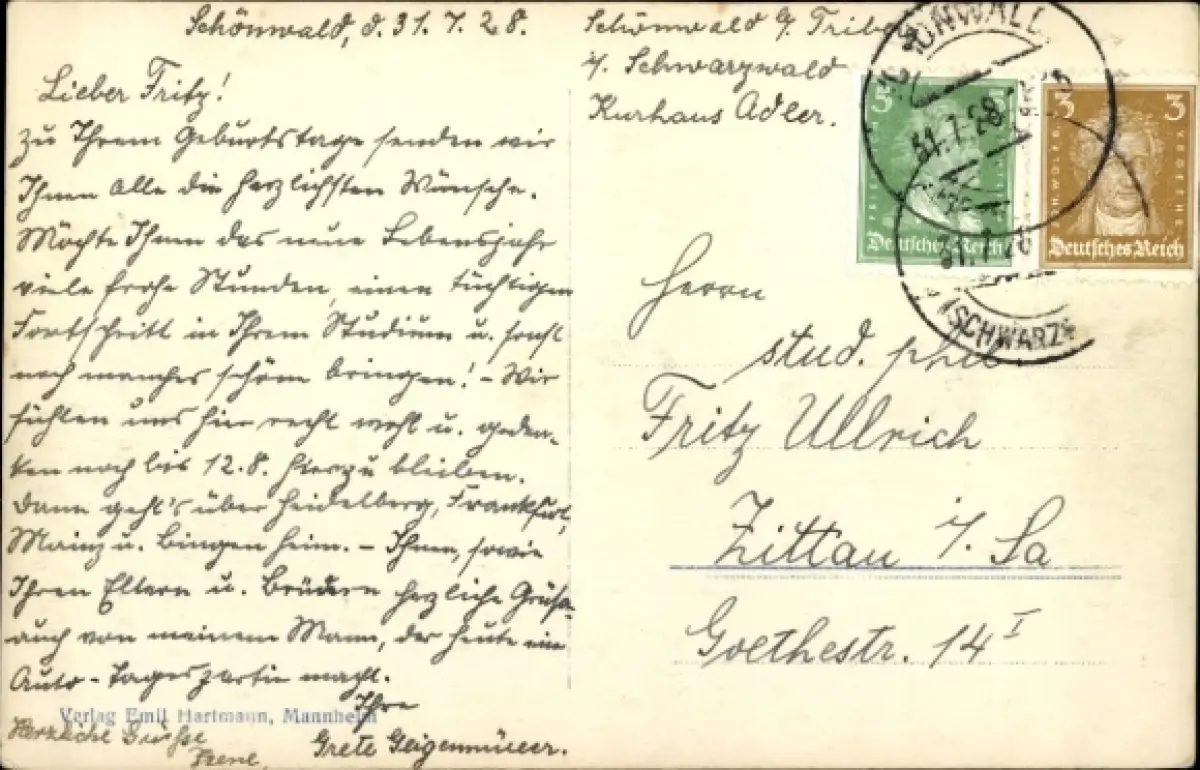 Schönwald, d. 31. 7. 28.
Lieber Fritz!
Zu Ihrem Geburtstage senden wir
Ihnen alle die herzlichsten Wünsche.
Möchte Ihnen das neue Lebensjahr
viele frohe Stunden, einen tüchtigen
Fortschritt in Ihrem Studium u. sonst
noch manches schöne bringen! - Wir
fühlen uns hier recht wohl u. geden-
ken noch bis 12.8. hier zu bleiben.
Dann geht's über Heidelberg, Frankfurt,
Mainz u. Bingen heim. - Ihnen, sowie
Ihren Eltern u. Brüdern herzliche Grüße
auch von meinem Mann, der heute eine
Auto-Tagespartie macht.
Ihre
Grete Geigenmüller.
Herzliche Grüsse
Irene
Verlag Emil Hartmann, Mannheim
Schönwald b/ Triberg
i/. Schwarzwald
Kurhaus Adler.
5
Deutsches Reich
3
3
Deutsches Reich
SCHÖNWALD
31.7.28
(SCHWARZW
Herrn
stud. phil.
Fritz Ullrich
Zittau i/. Sa
Goethestr. 14 I